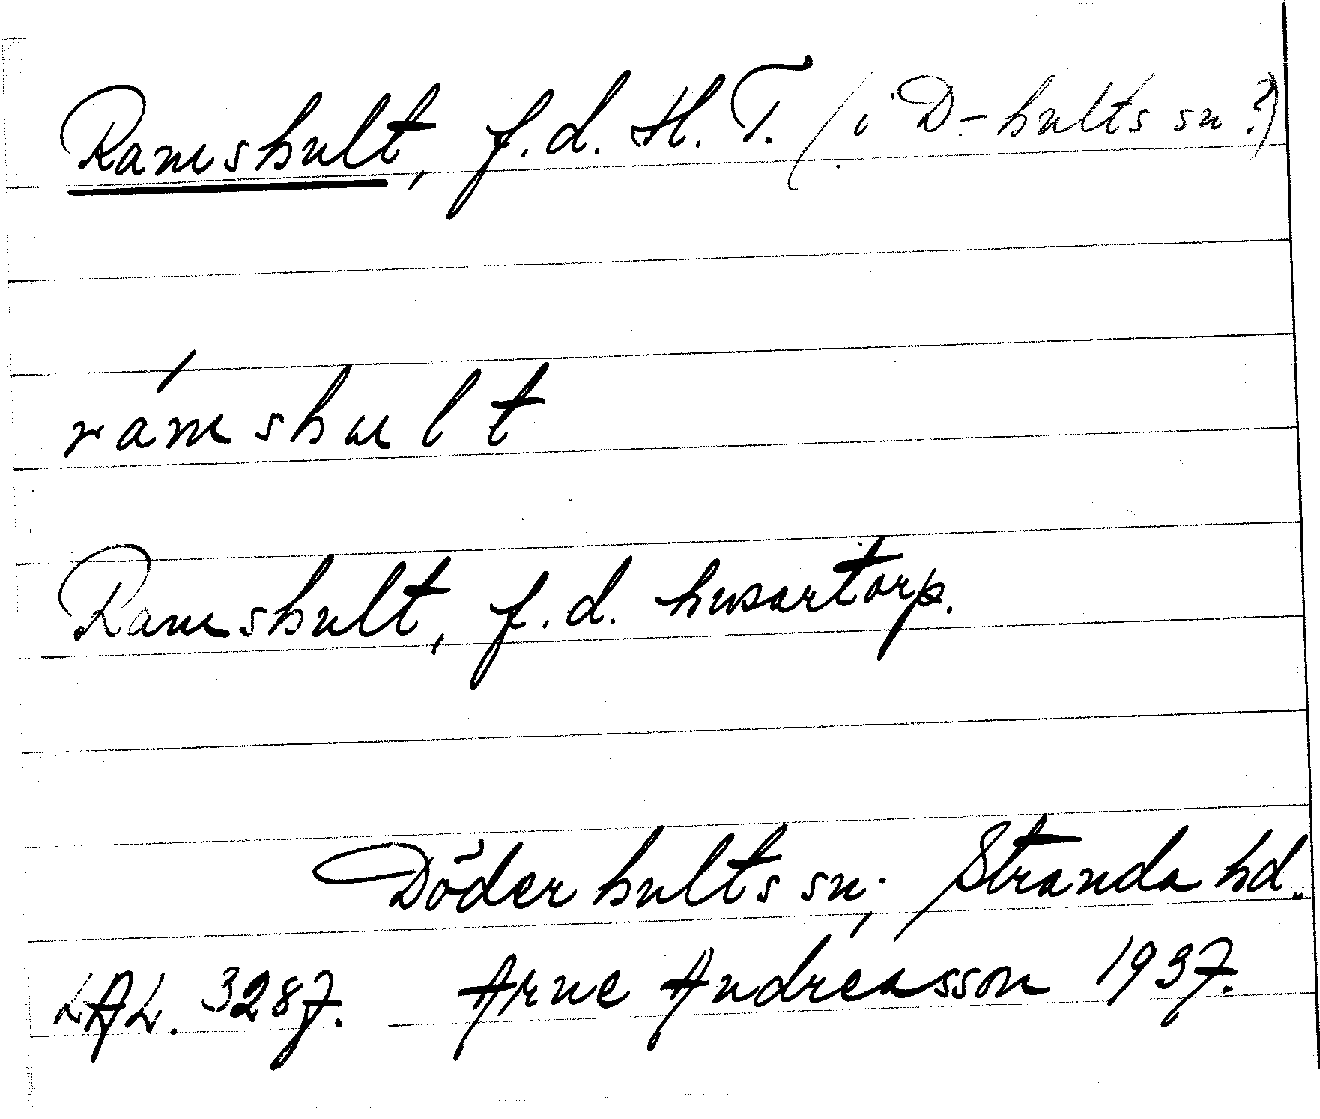 Ramshult, f.d. H. T. (i D-hults sn?)
rámshult
Ramshult, f.d. husartorp.
Döderhults sn; Stranda hd.
LAL. 3287. Arne Andreasson 1937.